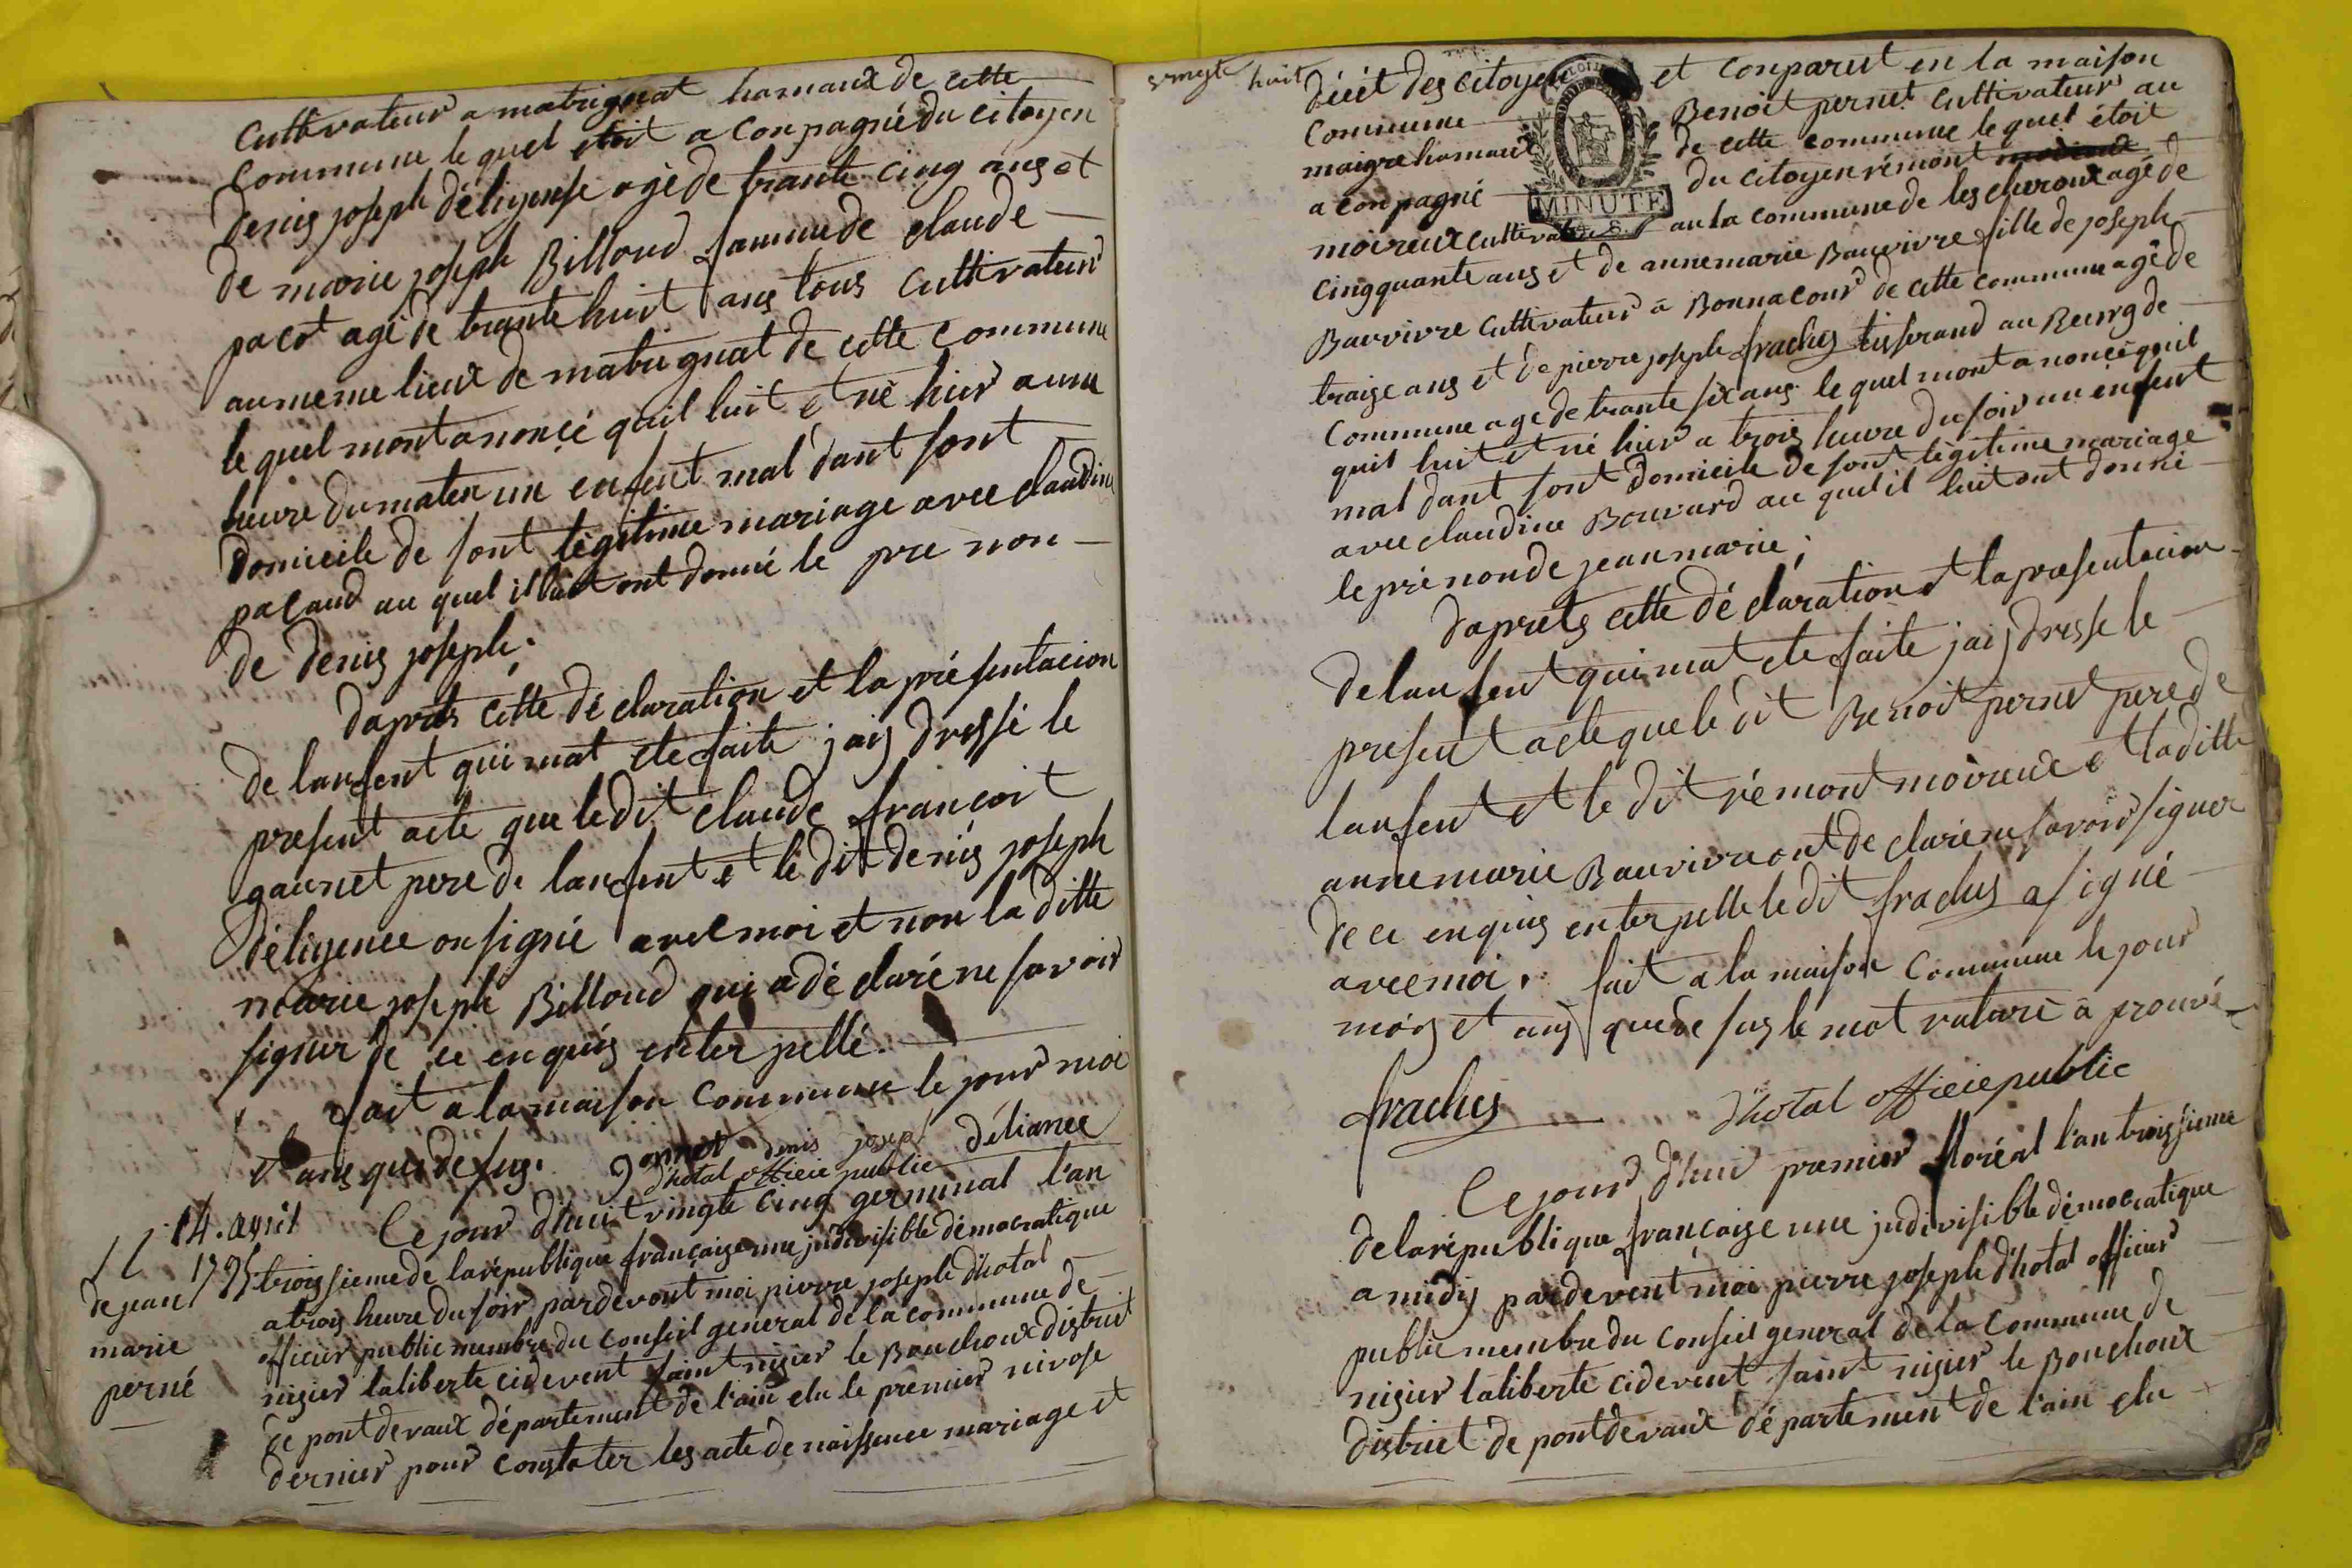 Cultivateur a matrignat hamaux de cette
Commune le quel étoit a Conpagné du citoyen
denis joseph déligense agé de trante cinq ans et
de marie joseph Billoud famme de claude
pacot agé de trante huit ans tous Cultivateur
au meme lieux de matrignat de cette Commune
le quel mont anoncé quil luit et né hier a une
heure du maten un enfent mal dant sont
Domicile de sont légitime mariage avec claudine
pacaud au quel il luit ont donné le pre non
de denis joseph;
daprets cette déclaration et la présentacion
de lanfent qui mat ete faite jais dressé le
present acte que le dit claude francoit
gaunet pere de lanfent et le dit denis joseph
déligence on signé avec moi et non la ditte
marie joseph Billoud qui a dé claré ne savoir
signer de ce enquis enter pellé.
fait a la maison Commune le jour moi
et ans que de sus. gonnet denis josep déliance
d'hotal officie public
14. avril
1795
de jean
marie
perné
Ce jour d'hui vingte cinq germinal l'an
trois sieme de la république française une jndivisible démocratique
a trois heure du soir pardevont moi pierre joseph d'hotal
officier public membre du Conseil general de la commune de
nisier laliberte cidevent saint nisier le Bouchoux district
de pont devaux département de l'ain elu le prémier nivose
dernier pour constater les acte de naissence mariage et
vingte huit
décèt des citoyen et Conparut en la maison
Commune Benoit pernet Cultivateur au
maigre hamaux de cette commune le quel étoit
a conpagné du citoyen rémont
MINUTE
moireux Cultivateur au la commune de les cheroux agé de
cinqquante ans et de annemarie Bauvivre fille de joseph
Bauvivre Cultivateur a Bonnacour de cette commune agé de
traize ans et de pierre joseph frachus tisserand au Bourg de
Commune agé de trante six ans le quel mont anoncé quil
quil luit et né hier a trois heure du soir un enfent
mal dant sont Domicile de sont légitime mariage
avec claudine Bouvard au quel il luit ont donné
le prénon de jean marie;
daprets cette dé claration et la presentacion
de lanfent qui mat ete faite jais dresse le
present acte que le dit Benoit pernet pere de
lanfent et le dit rémont moireux et la ditte
annemarie Bauvivre ont de claré ne savoir signer
de ce enquis enterpelle le dit frachus a signé
avec moi. fait a la maison Commune le jour
mois et ans que de sus le mot raturé a prouvé
frachus
d'hotal officie public
Ce jour d'hui premier floréal l'an trois sieme
de la république française une jndivisible démocratique
a midy pardevent moi pierre joseph d'hotal officier
public membre du Conseil general de la Commune de
nisier laliberte cidevent saint nisier le Bouchoux
district de pont devaux département de l'ain elu